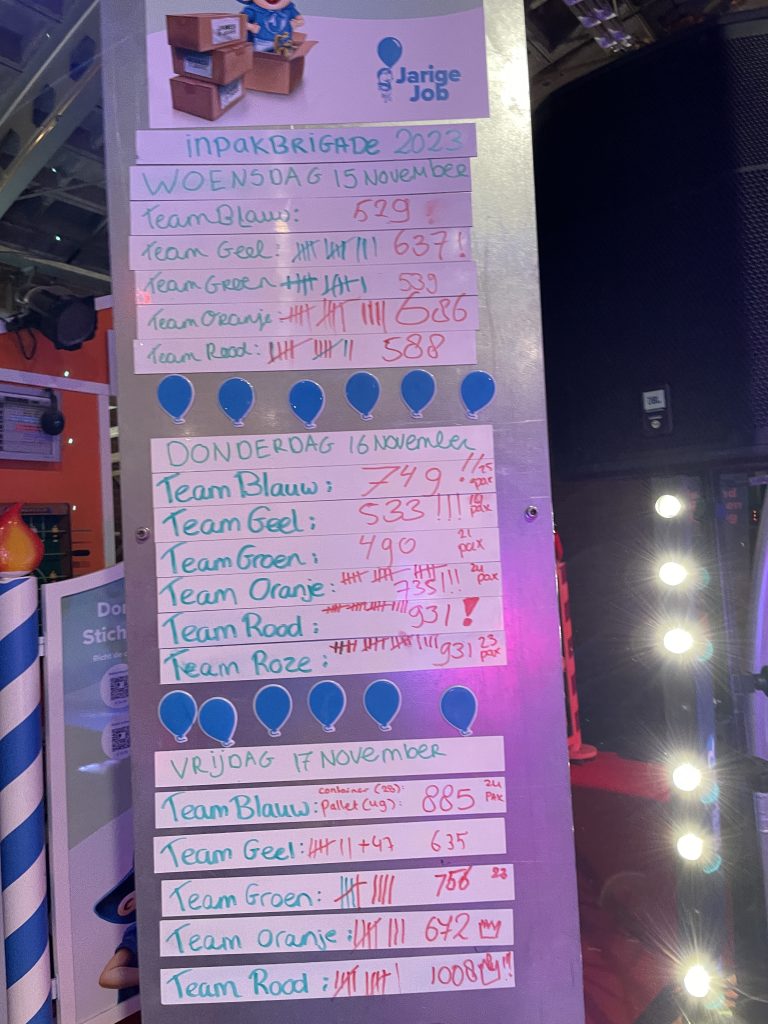 Jarige
Job
inpakBRIGADE 2023
WOENSDAG 15 November
Team Blauw: 529 !
Team Geel: 637!
Team Groen 539
Team Oranje: 686
Team Rood: 588
DONDERDAG 16 November
Team Blauw: 749 !! 25 pax
Team Geel: 533 !!! pax
Team Groen: 490 21 pax
Team Oranje: 735!!! 24 pax
Team Rood: 931 !
Team Roze: 931 23 pax
VRIJDAG 17 November
Team Blauw: container (28): Pallet (49): 885 24 PAX
Team Geel: +47 635
Team Groen: 756 23
Team Oranje: 672
Team Rood: 1008 !!
JBL